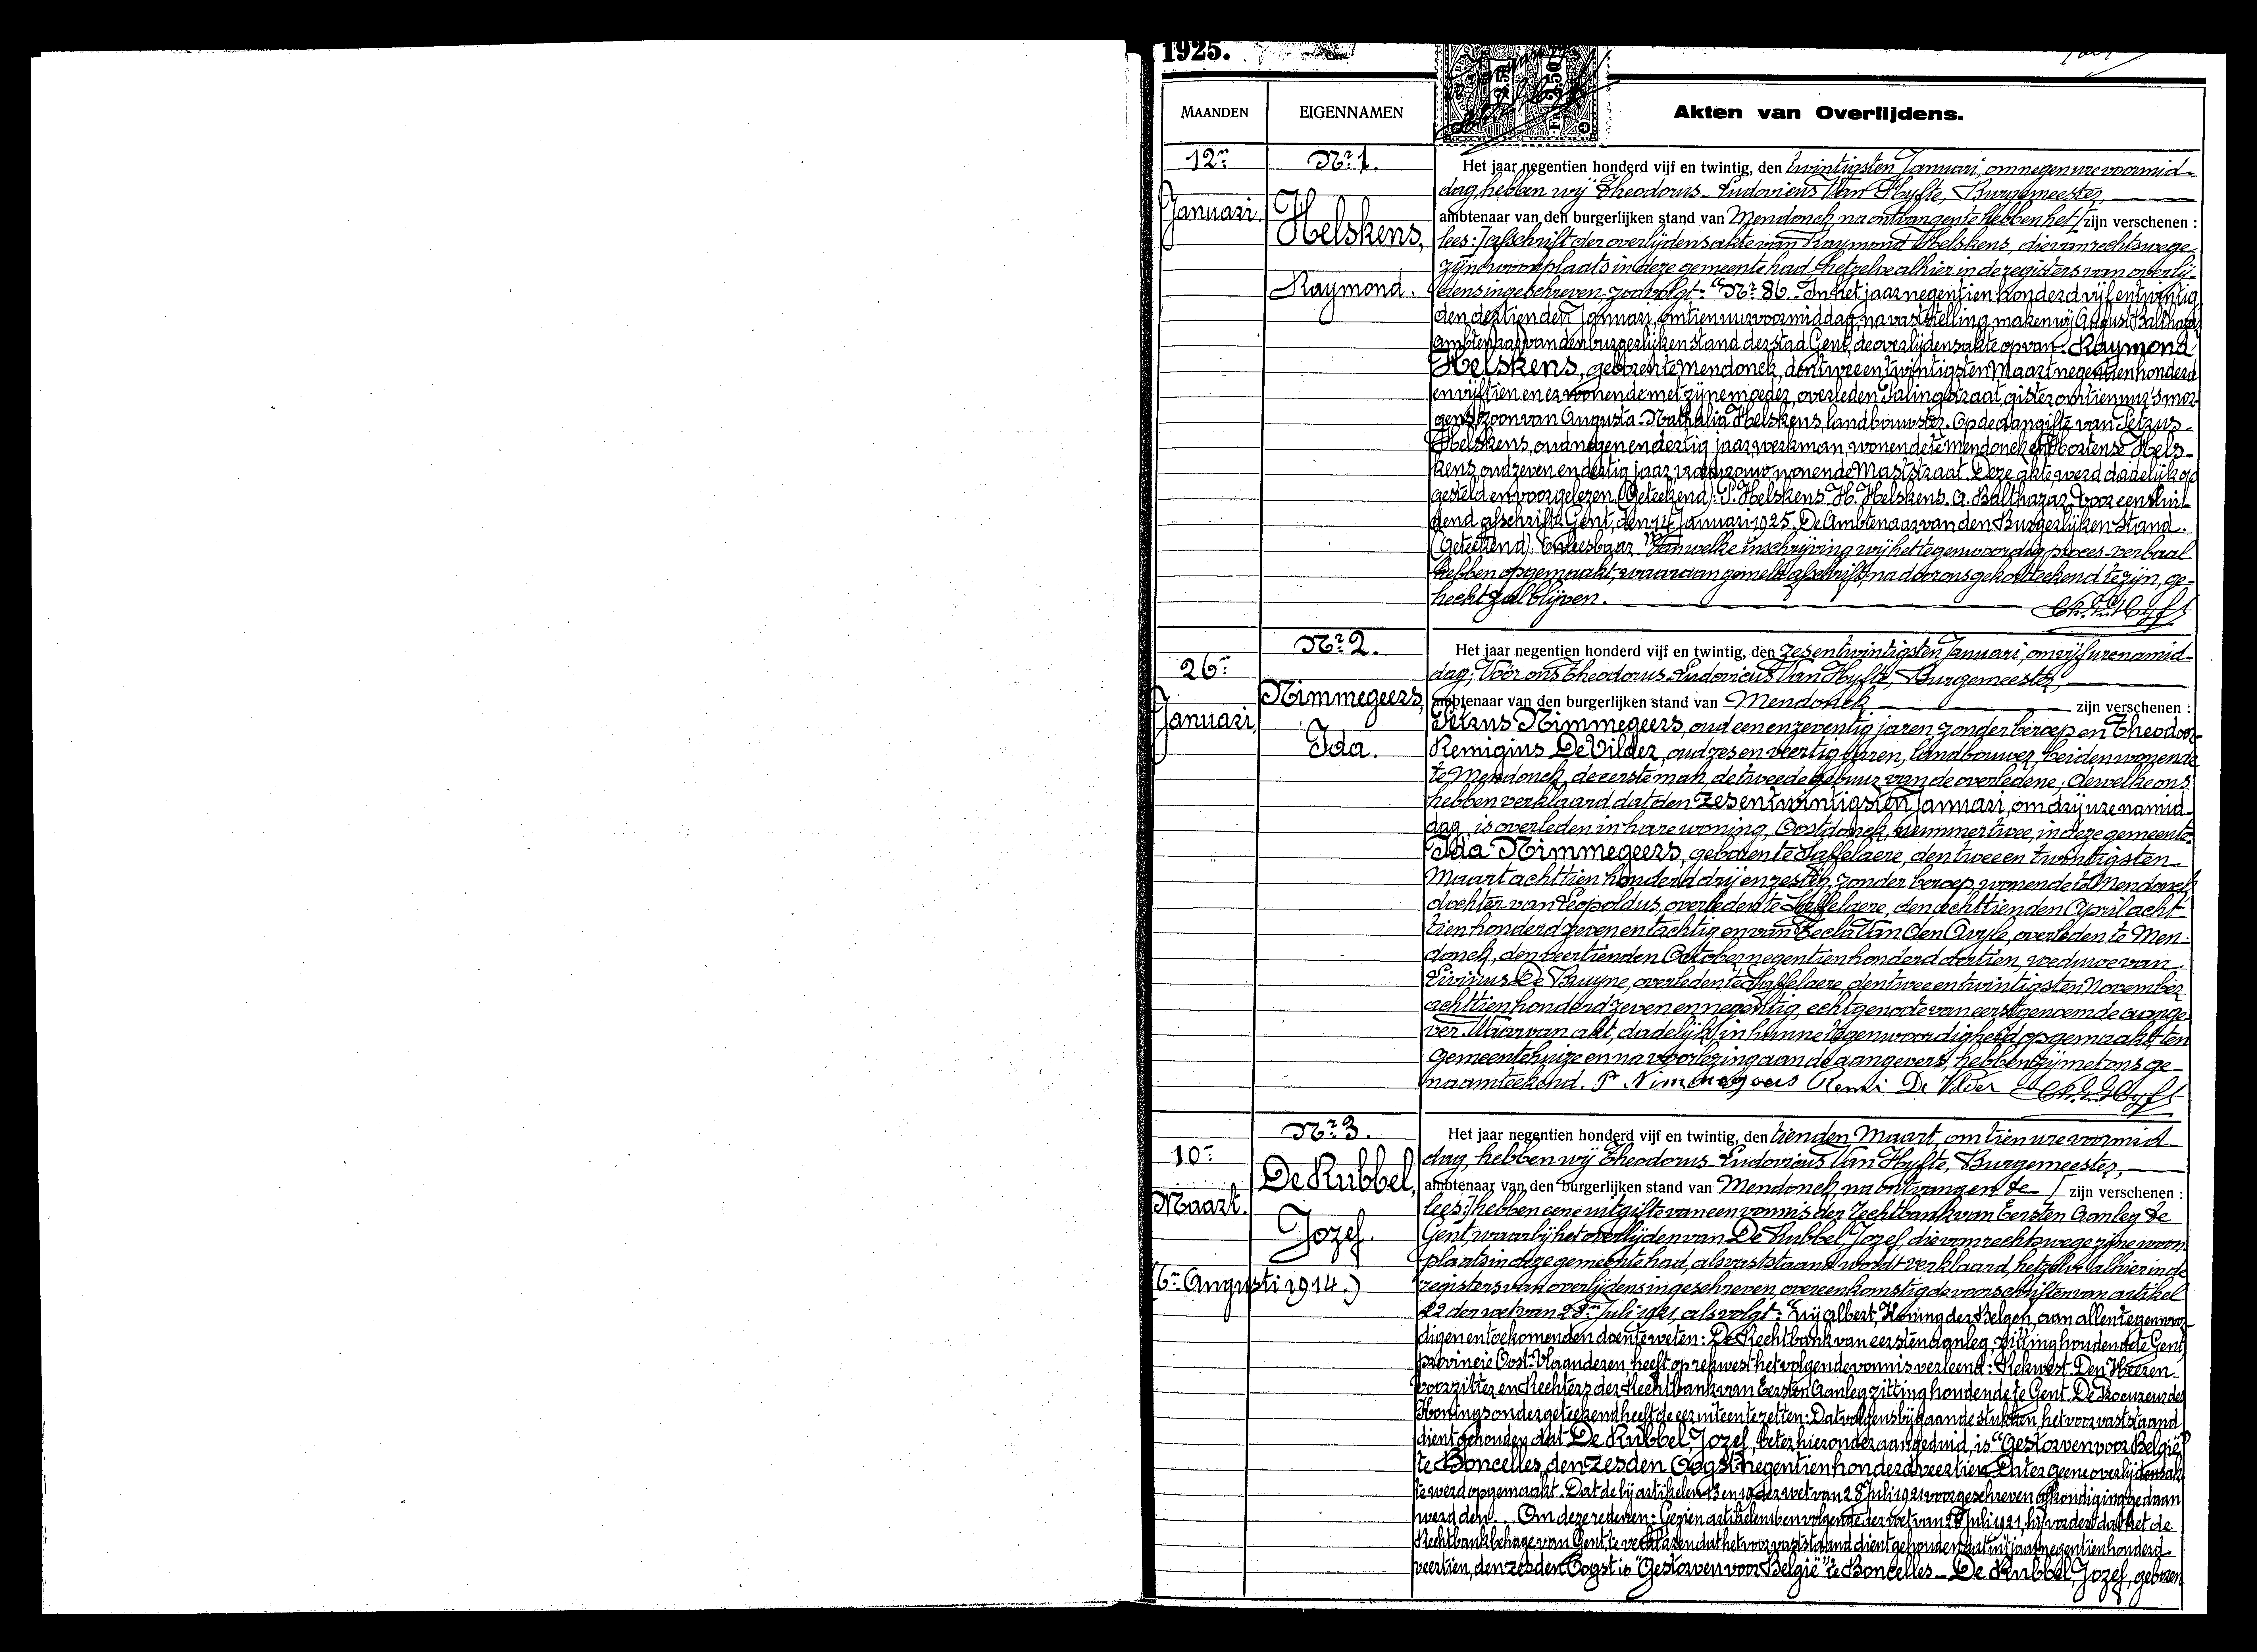 1925.
MAANDEN
EIGENNAMEN
Akten van Overlijdens.
12n
Januari.
Nr 1.
Helskens,
Raymond.
Het jaar negentien honderd vijf en twintig, den twintigsten Januari, om negen ure voormid-
dag, hebben wij Theodorus-Ludovicus Van Hyfte, Burgemeester,
ambtenaar van den burgerlijken stand van Mendonck, na ontvangen te hebben het / zijn verschenen :
lees:/ afschrift der overlijdensakte van Raymond Helskens, die van rechtswege
zijne woonplaats in deze gemeente had, hetzelve alhier in de registers van overlij-
dens ingeschreven, zoo volgt: "Nr 86. In het jaar negentien honderd vijf en twintig
den dertienden Januari, om tien uur voormiddag, na vaststelling, maken wij August Balthazar
ambtenaar van den burgerlijken stand der stad Gent, de overlijdensakte op van: Raymond
Helskens, geboren te Mendonck, den twee en twintigsten Maart negentien honderd
en vijftien en er wonende met zijne moeder, overleden Palingstraat, gister om tien uur 's mor-
gens, zoon van Augusta-Nathalia Helskens, landbouwster. Op de aangifte van Petrus
Helskens, oud negen en dertig jaar, werkman, wonende te Mendonck en Hortense Hels-
kens, oud zeven en dertig jaar, wonende Maststraat. Deze akte werd dadelijk op
gesteld en voorgelezen. (Geteekend): P. Helskens. H. Helskens. A. Balthazar. Voor eenslui-
dend afschrift. Gent, den 14 Januari 1925. De Ambtenaar van den Burgerlijken Stand.
(Geteekend). Van welke inschrijving wij het tegenwoordig proces-verbaal
hebben opgemaakt, waaraan gemeld afschrift, na door ons gekortteekend te zijn, ge-
hecht zal blijven.
26n
Januari.
Nr 2.
Nimmegeers,
Ida.
Het jaar negentien honderd vijf en twintig, den zesentwintigsten Januari, om vijf ure namid-
dag; Vóór ons Theodorus-Ludovicus Van Hyfte, Burgemeester,
ambtenaar van den burgerlijken stand van Mendonck zijn verschenen :
Petrus Nimmegeers, oud een en zeventig jaren zonder beroep en Theodoor-
Remigius De Vilder, oud zes en veertig jaren, landbouwer, beiden wonende
te Mendonck, de eerste man, de tweede gebuur van de overledene; dewelke ons
hebben verklaard dat den zesentwintigsten Januari, om drij ure namid-
dag, is overleden in hare woning, Oostdonck, nummer twee, in deze gemeente:
Ida Nimmegeers, geboren te Saffelaere, den twee en twintigsten
Maart achttien honderd drij en zestig, zonder beroep, wonende te Mendonck
dochter van Leopoldus, overleden te Saffelaere, den achttienden April acht-
tien honderd zeven en tachtig en van Tecla Van Den Avyle, overleden te Men-
donck, den veertienden October negentien honderd dertien, weduwe van
Livinus De Bruyne, overleden te Saffelaere, den twee en twintigsten November
achttien honderd zeven en negentig, echtgenoote van eerstgenoemde aange-
ver. Waarvan akt, dadelijk in hunne tegenwoordigheid opgemaakt, ten
gemeentehuize en na voorlezing aan de aangevers, hebben zij met ons ge-
naamteekend. Pr Nimmegeers Remi De Vilder
10n
Maart.
(6n Augusti 1914.)
Nr 3.
De Rubbel,
Jozef.
Het jaar negentien honderd vijf en twintig, den tienden Maart, om tien ure voormid-
dag, hebben wij Theodorus-Ludovicus Van Hyfte, Burgemeester,
ambtenaar van den burgerlijken stand van Mendonck, na ontvangen te / zijn verschenen :
lees:/ hebben eene uitgifte van een vonnis der rechtbank van Eersten Aanleg te
Gent, waarbij het overlijden van De Rubbel, Jozef, die van rechtswege zijne woon-
plaats in deze gemeente had, als vaststaand wordt verklaard, hetzelve alhier in de
registers van overlijdens ingeschreven, overeenkomstig de voorschriften van artikel
22 der wet van 28n Juli 1921, als volgt: "Wij Albert, Koning der Belgen, aan allen tegenwoor-
digen en toekomenden doen te weten: De Rechtbank van eersten aanleg, zitting houdende te Gent,
provincie Oost-Vlaanderen, heeft op rekwest het volgende vonnis verleend: Rekwest. Den Heeren
Voorzitter en Rechters der Rechtbank van Eersten Aanleg zitting houdende te Gent. De Procureur des
Konings ondergeteekend heeft de eer uiteen te zetten: Dat volgens bijgaande stukken, het voor vaststaand
dient gehouden dat De Rubbel, Jozef, beter hieronder aangeduid, is "Gestorven voor België"
te Boncelles, den zesden Oogst negentien honderd veertien. Dat er geene overlijdensak-
te werd opgemaakt. Dat de bij artikelen 13 en 19 der wet van 28 Juli 1921 voorgeschreven afkondiging gedaan
werd den... Om deze redenen: Gezien artikelen en volgende der wet van 28 Juli 1921, hij vordert dat het de
Rechtbank behage van Gent, te verklaren dat het voor vaststaand dient gehouden dat in 't jaar negentien honderd
veertien, den zesden Oogst is "Gestorven voor België" te Boncelles - De Rubbel, Jozef, geboren